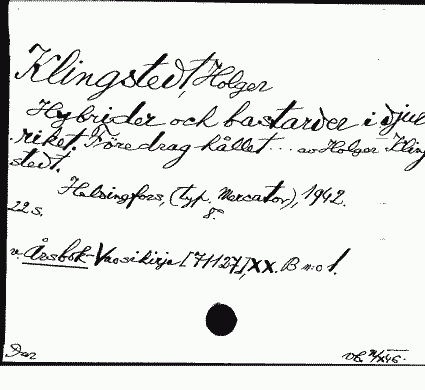 Klingstedt, Holger
Hybrider och bastarder i djur-
riket. Föredrag hållet ... av Holger Kling-
stedt.
Helsingfors, (typ. Mercator), 1942.
22 s. 8:o
v. Årsbok-Vuosikirja [71127], XX. B n:o 1.